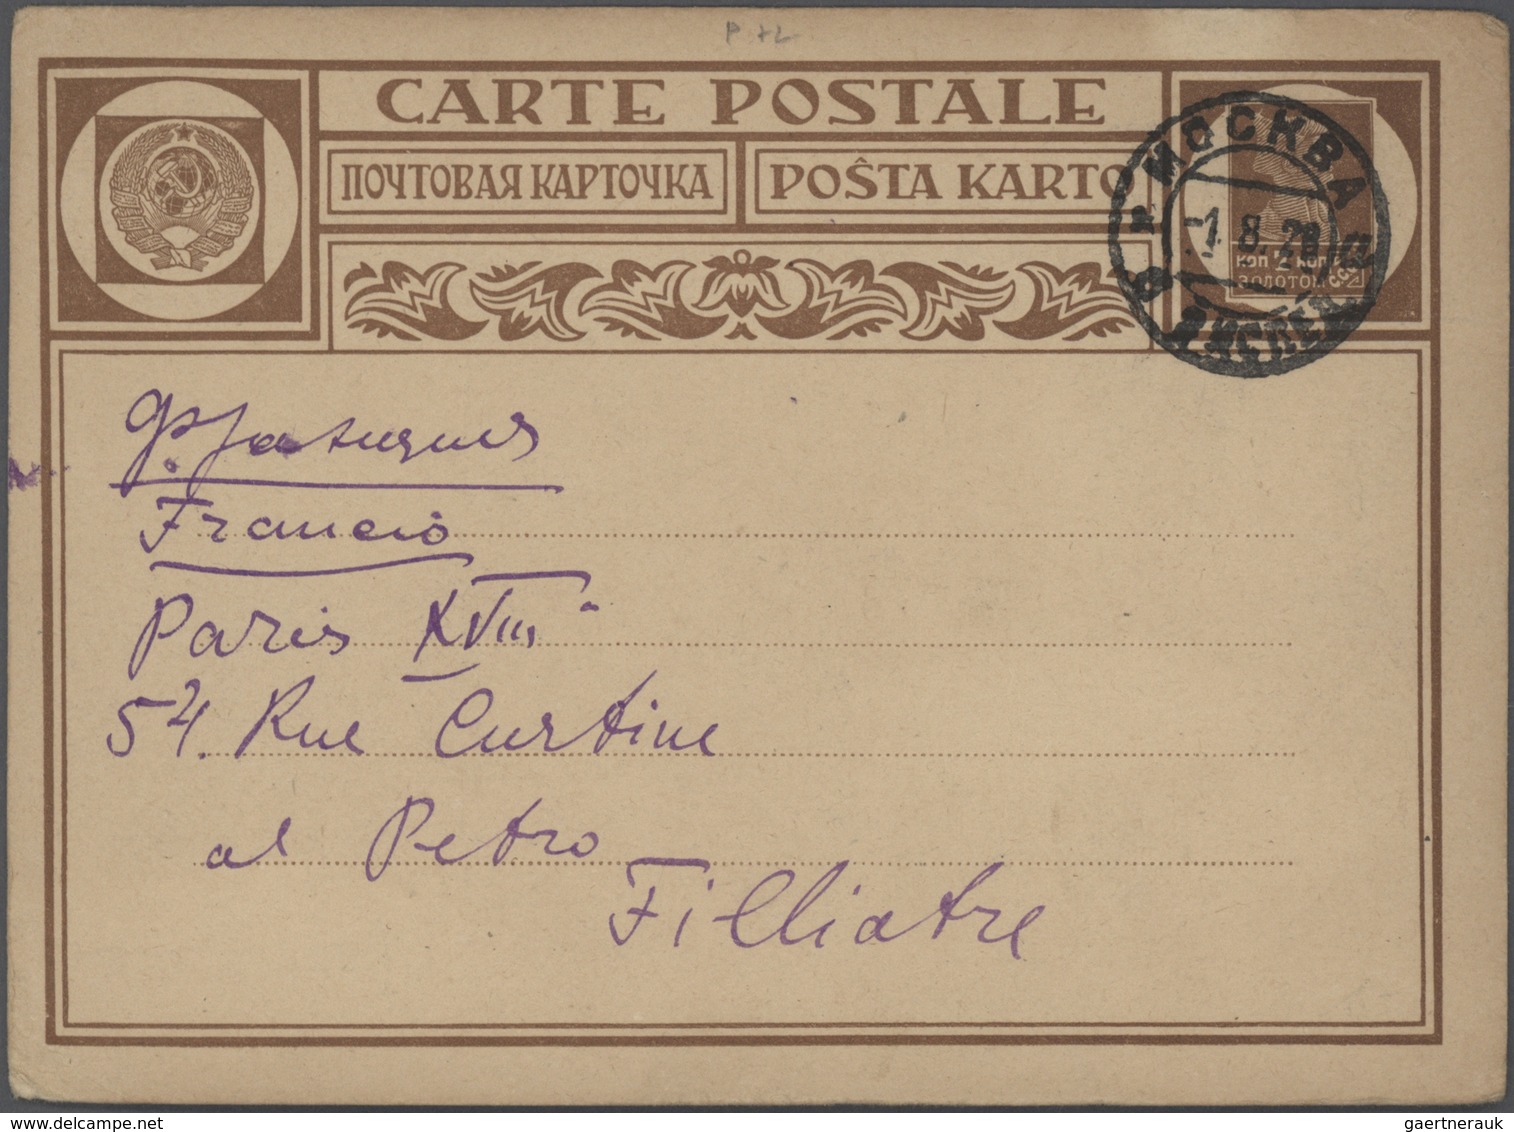 P +2
CARTE POSTALE
ПОЧТОВАЯ КАРТОЧКА
POŜTA KARTO
МОСКВА
-1.8.28
ЭКСПЕД.
КОП 2 КОП
ЗОЛОТОМ
Франция
Francio
Paris XVIII
54. Rue Custine
al Petro
Filliatre
gaertnerauk